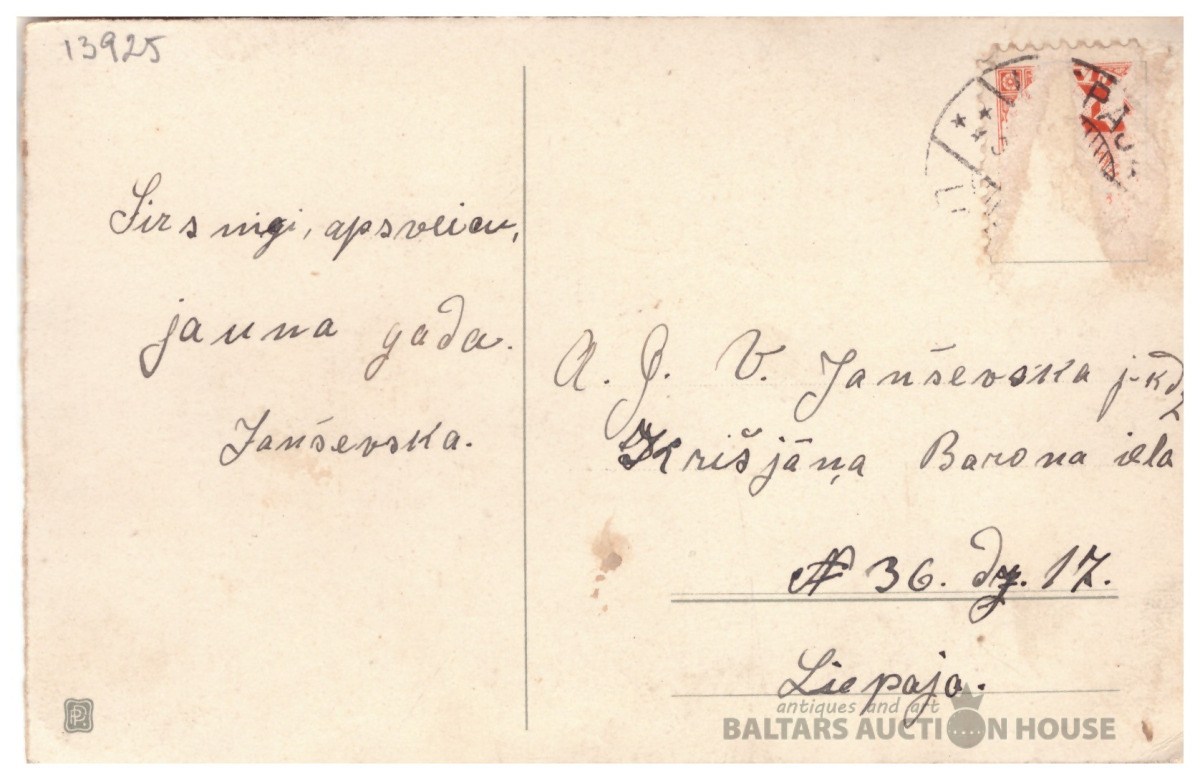 13925
Sirsnigi, apsveicu,
jauna gada.
Janševska.
PAJ
A. G. V. Janševska j-kdz
Krišjāņa Barona iela
№ 36. dz. 17.
Liepaja.
antiques and art
BALTARS AUCTION HOUSE